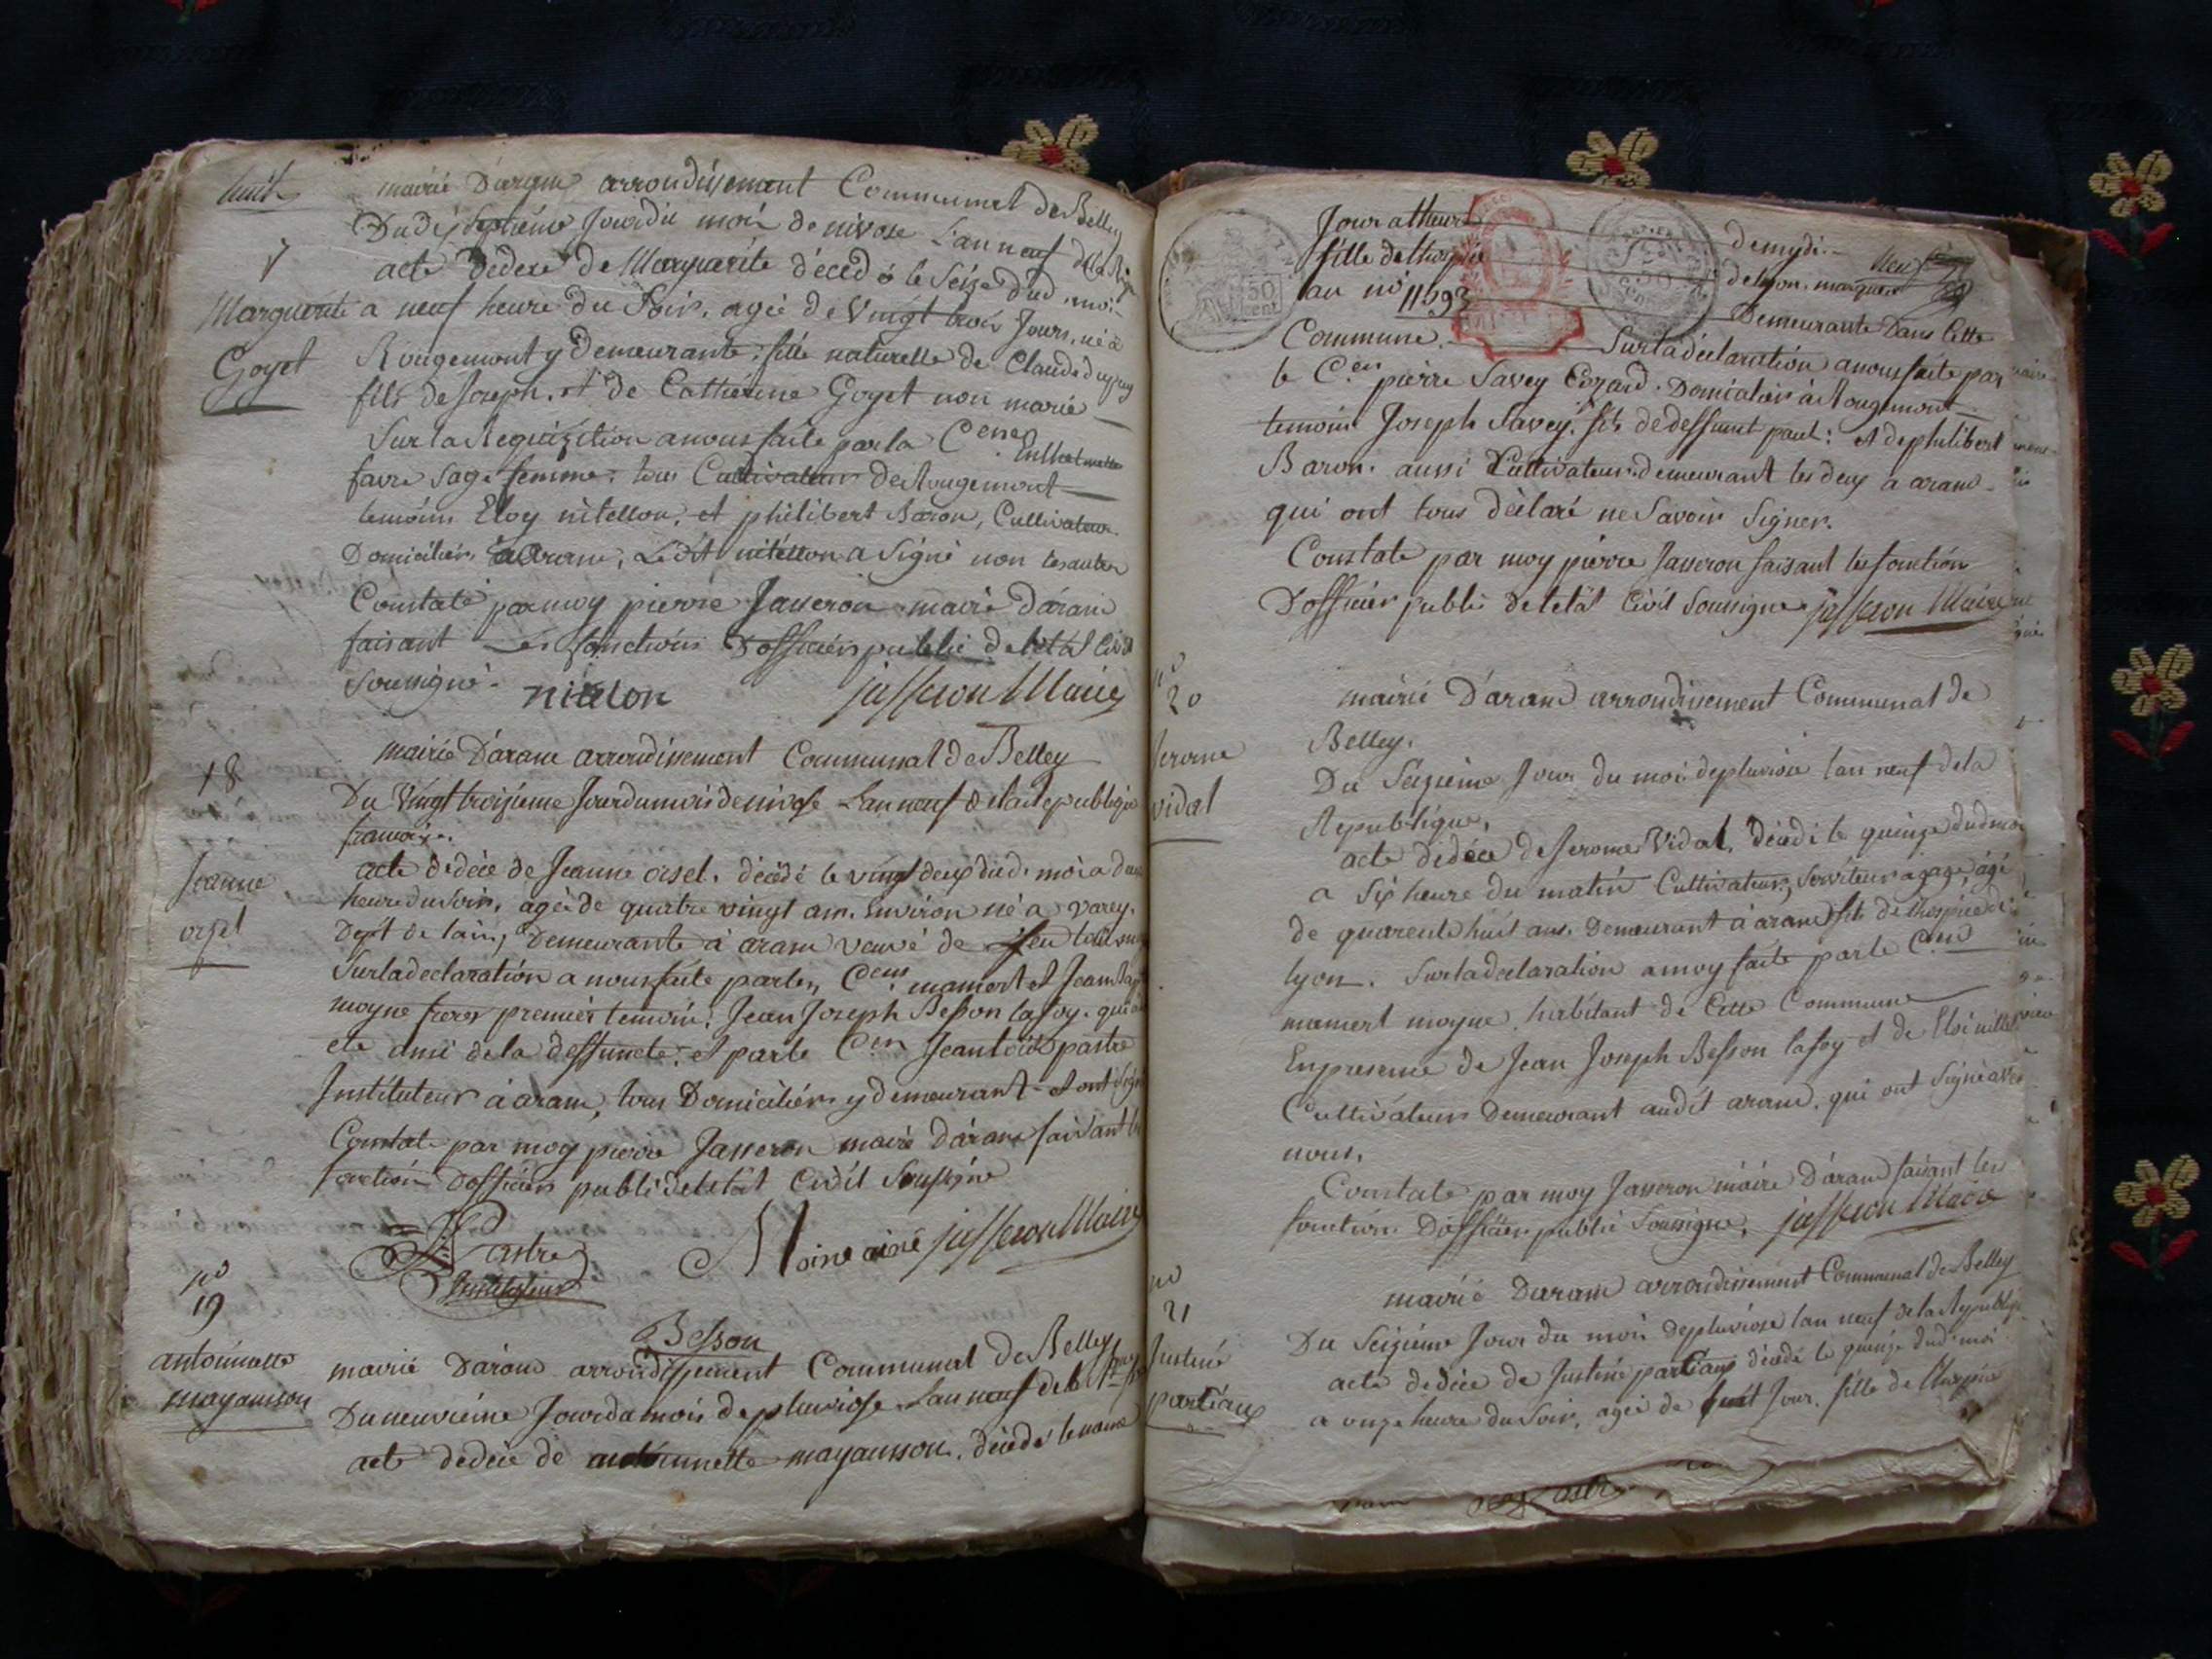 huit
mairie D'aram arrondissement Communal de Belley
Du dix septième Jour du mois de nivose L'an neuf de la Rép
acte de décès de Marguerite décédé le Seize dud. moi
Marguerite
Goyet
a neuf heure du Soir, agée de Vingt trois Jours, né à
Rougemont y demeurante, fille naturelle de Claude
fils de Joseph, et de Catherine Goyet non marié
Sur la Requisition a nous faite par la Cenne
favre Sage femme, tous Cultivateurs de Rougemont
temoins Eloy nitellon, et philibert Baron, Cultivateur
Domiciliés à Aram, Ledit nitellon a Signé non les autres
Constaté par moy pierre Jasseron mairie d'aram
faisant Les fonctions D'officier public de letat Civil
Soussigné.
nitelon
jasseron Maire
18
Jeanne
orset
mairie D'aram arrondissement Communal de Belley
Du Vingt troizieme Jour du mois de nivose L'an neuf de la republique
francaise.
acte de décè de Jeanne orset. décédé le vingt deux dud. moi a deux
heure du Soir, agée de quatre vingt ans Environ né a Varey,
Dept de lain, Demeurante à aram veuve de feu
Sur la declaration a nous faite par les Cens mamert et Jean
moyne freres premier temoin, Jean Joseph Besson lafoy. qui a
ete ami de la deffuncte, et par le Cen Jean pastre
Instituteur à aram, tous Domiciliés y demeurant et ont Signé
Constaté par moy pierre Jasseron maire d'aram faisant les
fonction D'officier public de letat Civil Soussigné
Pastre
Instituteur
Moine ainé
jasseron Maire
Besson
no
19
antoinette
mayansson
mairie D'aram arrondissement Communal de Belley
Du neuvième Jour du mois de pluviose L'an neuf de la
acte de décè de antoinette mayansson. décédé le meme
50
cent
Jour a
demydi.
fille de
de lyon. marquée
au no 11593
Demeurante Dans Cette
Commune.
Sur la déclaration a nous faite par
le Cen pierre Savey Cozard. Domicilié à Rougemont
temoin Joseph Savey, fils de deffunt paul: et de philibert
Baron. aussi Cultivateurs demeurant les deux a aram
qui ont tous déclaré ne Savoir Signer.
Constaté par moy pierre Jasseron faisant les fonction
D'officier public de letat Civil Soussigné jasseron Maire
no
20
Jerome
vidal
mairie D'aram arrondissement Communal de
Belley.
Du Seizieme Jour du moi de pluviose l'an neuf de la
Republique,
acte de décè de Jerome Vidal, décédé le quinze dud moi
a Six heure du matin Cultivateur, Serviteur a gage, agé
de quarente huit ans. demeurant à aram fils de lhospice de
lyon. Sur la declaration a moy faite par le Cen
mamert moyne. habitant de Cette Commune
En presence de Jean Joseph Besson lafoy et de Eloi
Cultivateurs demeurant audit aram. qui ont Signé avec
nous,
Constaté par moy Jasseron maire D'aram faisant les
fonction D'officier public Soussigné, jasseron Maire
no
21
Justine
partiaux
mairie Daram arrondissement Communal de Belley
Du Seizieme Jour du moi de pluviose l'an neuf de la Republiq
acte de décè de Justine partiaux décédé le quinze dud moi
a onze heure du Soir, agée de huit Jour, fille de lhospice